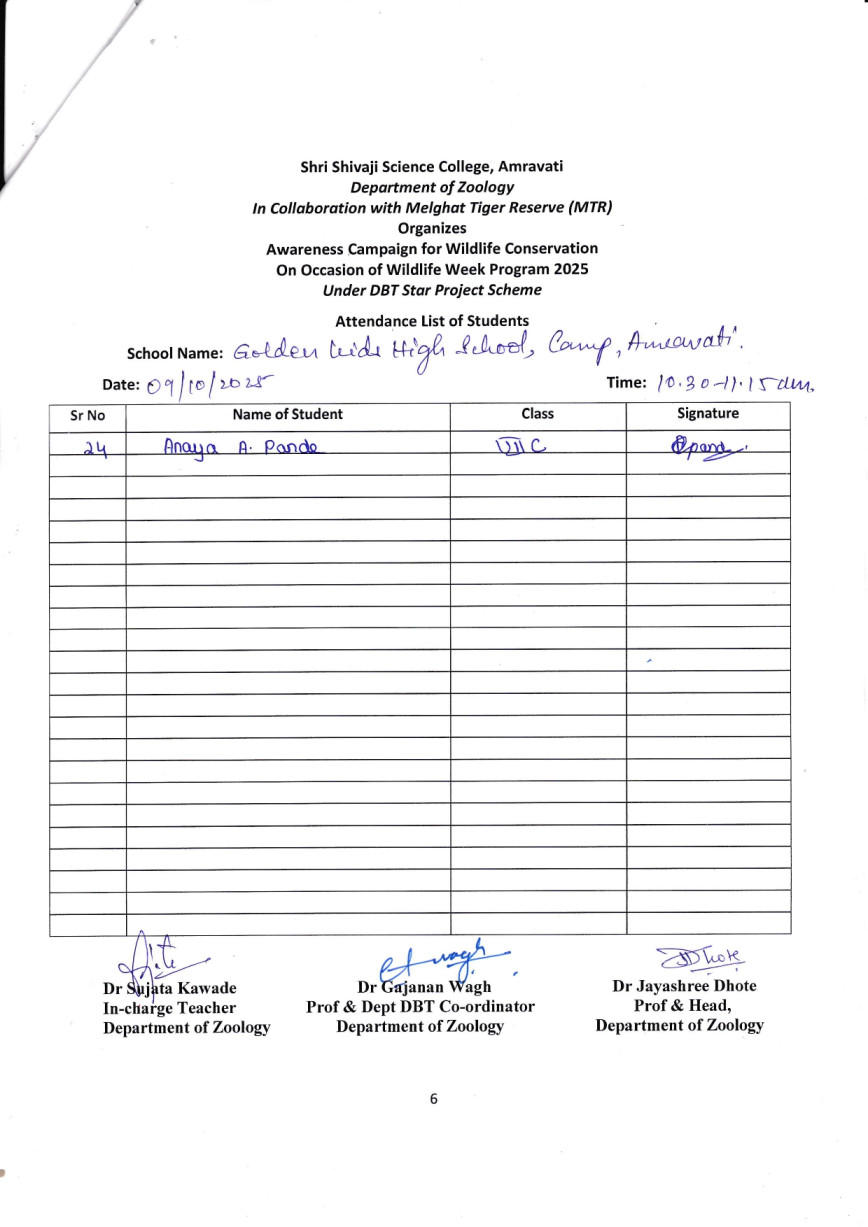 Shri Shivaji Science College, Amravati
Department of Zoology
In Collaboration with Melghat Tiger Reserve (MTR)
Organizes
Awareness Campaign for Wildlife Conservation
On Occasion of Wildlife Week Program 2025
Under DBT Star Project Scheme
Attendance List of Students
School Name: Golden Kids High School, Camp, Amravati.
Date: 09/10/2025 Time: 10.30-11.15 am.
Sr No Name of Student Class Signature
24 Anaya A. Pande VIII C
Dr Sujata Kawade Dr Gajanan Wagh Dr Jayashree Dhote
In-charge Teacher Prof & Dept DBT Co-ordinator Prof & Head,
Department of Zoology Department of Zoology Department of Zoology
6